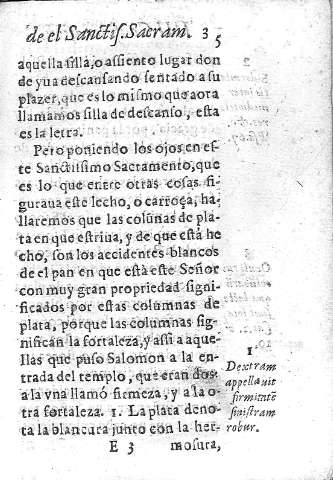 de el Sanctis. Sacram. 35
aquella silla, o assiento lugar don
de yua descansando sentado a su
plazer, que es lo mismo que aora
llamamos silla de descanso, esta
es la letra.
Pero poniendo los ojos en es-
te Sanctissimo Sacramento, que
es lo que entre otras cosas fi-
guraua este lecho, o carroça, ha-
llaremos que las colūnas de pla-
ta en que estriua, y de que està he
cho, son los accidentes blancos
de el pan en que està este Señor
con muy gran propriedad signi-
ficados por estas columnas de
plata, porque las columnas sig-
nifican la fortaleza, y assi a aque-
llas que puso Salomon a la en-
trada del templo, que eran dos
a la vna llamó firmeza, y a la o-
tra fortaleza. 1. La plata deno-
ta la blancura junto con la her-
E 3 mosura,
1.
Dextram
appellauit
firmitatē
sinistram
robur.